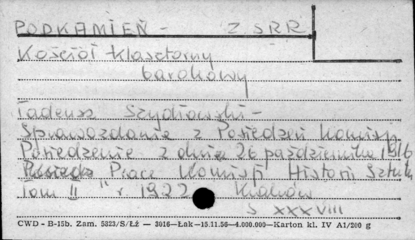 PODKAMIEŃ - Z SRR
Kościół klasztorny
barokowy
Tadeusz Szydłowski -
Sprawozdanie z Posiedzeń Komisji
Posiedzenie z dnia 26 października 1916
Prace Komisji Historii Sztuki
Tom II r 1922 Kraków
S XXXVIII
CWD - B-15b. Zam. 5823/S/Łż - 3016-Łak-15.11.56-4.000.000-Karton kl. IV A1/200 g